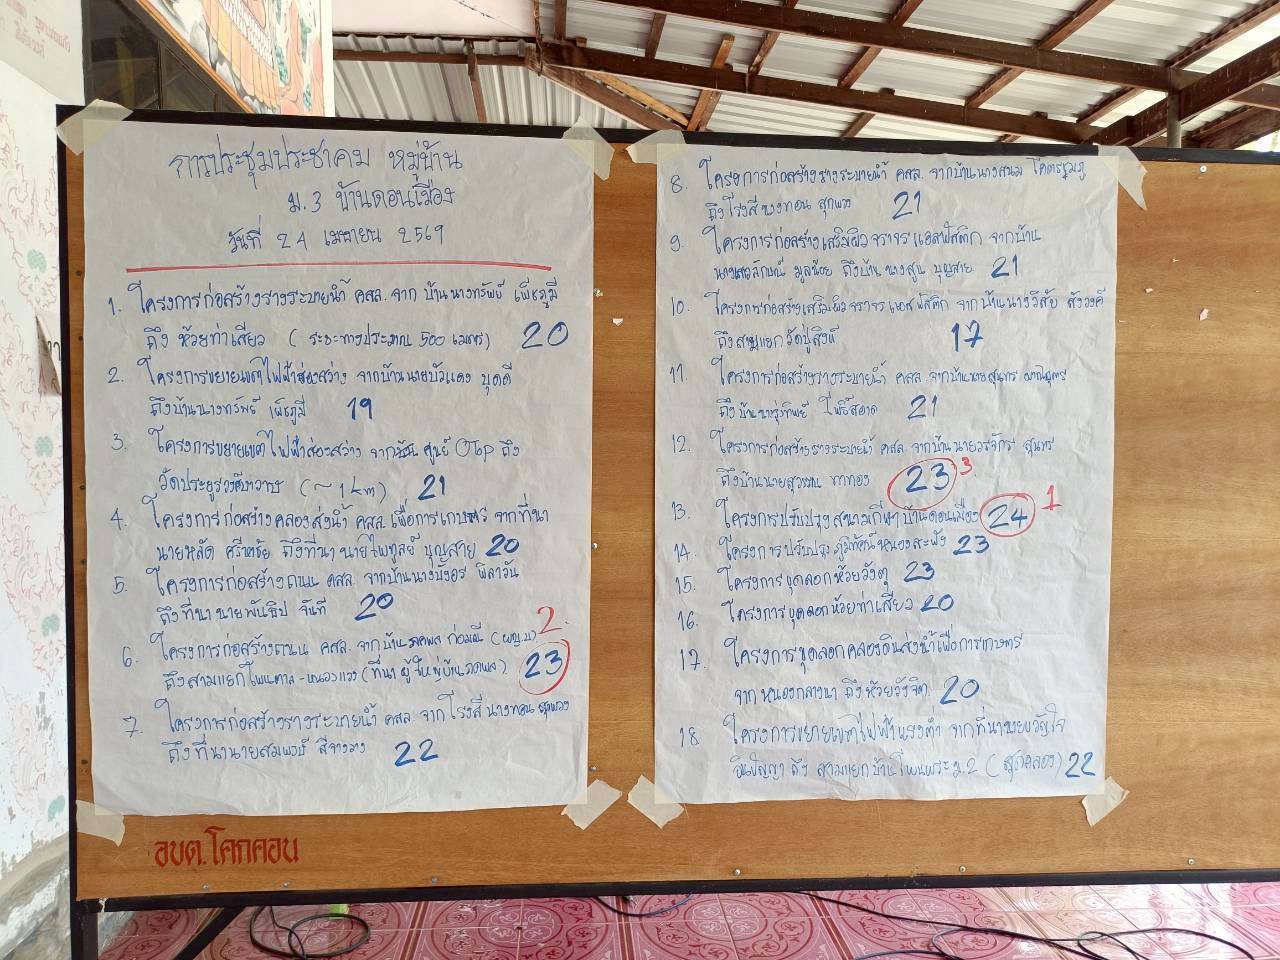 การประชุมประชาคม หมู่บ้าน
ม.3 บ้านดอนเมือง
วันที่ 24 เมษายน 2569
1. โครงการก่อสร้างรางระบายน้ำ คสล. จาก บ้านนางทรัพย์ เพ็ชภูมี
ถึง ห้วยท่าเสียว (ระยะทางประมาณ 500 เมตร) 20
2. โครงการขยายเขตไฟฟ้าส่องสว่าง จากบ้านนายบัวแดง บุดดี
ถึงบ้านนางทรัพย์ เพ็ชภูมี 19
3. โครงการขยายเขตไฟฟ้าส่องสว่าง จาก ศูนย์ OTop ถึง
วัด (~ 1 km) 21
4. โครงการก่อสร้างคลองส่งน้ำ คสล. เพื่อการเกษตร จากที่นา
นายหลัด ศรีวิชัย ถึงที่นา นายไพฑูลย์ บุญสาย 20
5. โครงการก่อสร้างถนน คสล จากบ้านนางบังอร พิลาวัน
ถึงที่นา นายพันธิป จันที 20
6. โครงการก่อสร้างถนน คสล. จากบ้าน (ผญ.บ) 2
ถึงสามแยกโพนตาล - หนองแวง (ที่นา ผู้ใหญ่บ้าน) 23
7. โครงการก่อสร้างรางระบายน้ำ คสล. จาก โรงสี นางทอน สุกพวง
ถึงที่นานายสมพงษ์ สีจางวาง 22
8. โครงการก่อสร้างรางระบายน้ำ คสล. จากบ้านนางสนม โคตรชมภู
ถึงโรงสีนางทอน สุกพวง 21
9. โครงการก่อสร้างเสริมผิวจราจรแอสฟัสติก จากบ้าน
นางเสาวลักษณ์ มูลน้อย ถึงบ้าน นางสูน บุญสาย 21
10. โครงการก่อสร้างเสริมผิวจราจร แอสฟัสติก จากบ้านนางวิสัย สังวงค์
ถึงสามแยกวัดปู่สิงห์ 17
11. โครงการก่อสร้างรางระบายน้ำ คสล. จากบ้านนายสุนทร
ถึงบ้านนางรุ่งทิพย์ โพธิ์สอาด 21
12. โครงการก่อสร้างรางระบายน้ำ คสล. จากบ้านนายวรจักร สุนทร
ถึงบ้านนายสุวรรณ ทาทอง 23 3
13. โครงการปรับปรุงสนามกีฬาบ้านดอนเมือง 24 1
14. โครงการปรับปรุงภูมิทัศน์หนองสะพัง 23
15. โครงการขุดลอกห้วยวังตุ 23
16. โครงการขุดลอกห้วยท่าเสียว 20
17. โครงการขุดลอกคลองดินส่งน้ำเพื่อการเกษตร
จากหนองกลางนา ถึงห้วยวังจิต 20
18. โครงการขยายเขตไฟฟ้าแรงต่ำ จากที่นานายขวัญใจ
อินปัญญา ถึง สามแยกบ้านโพนพระ ม.2 (สุดคลอง) 22
อบต.โคกคอน